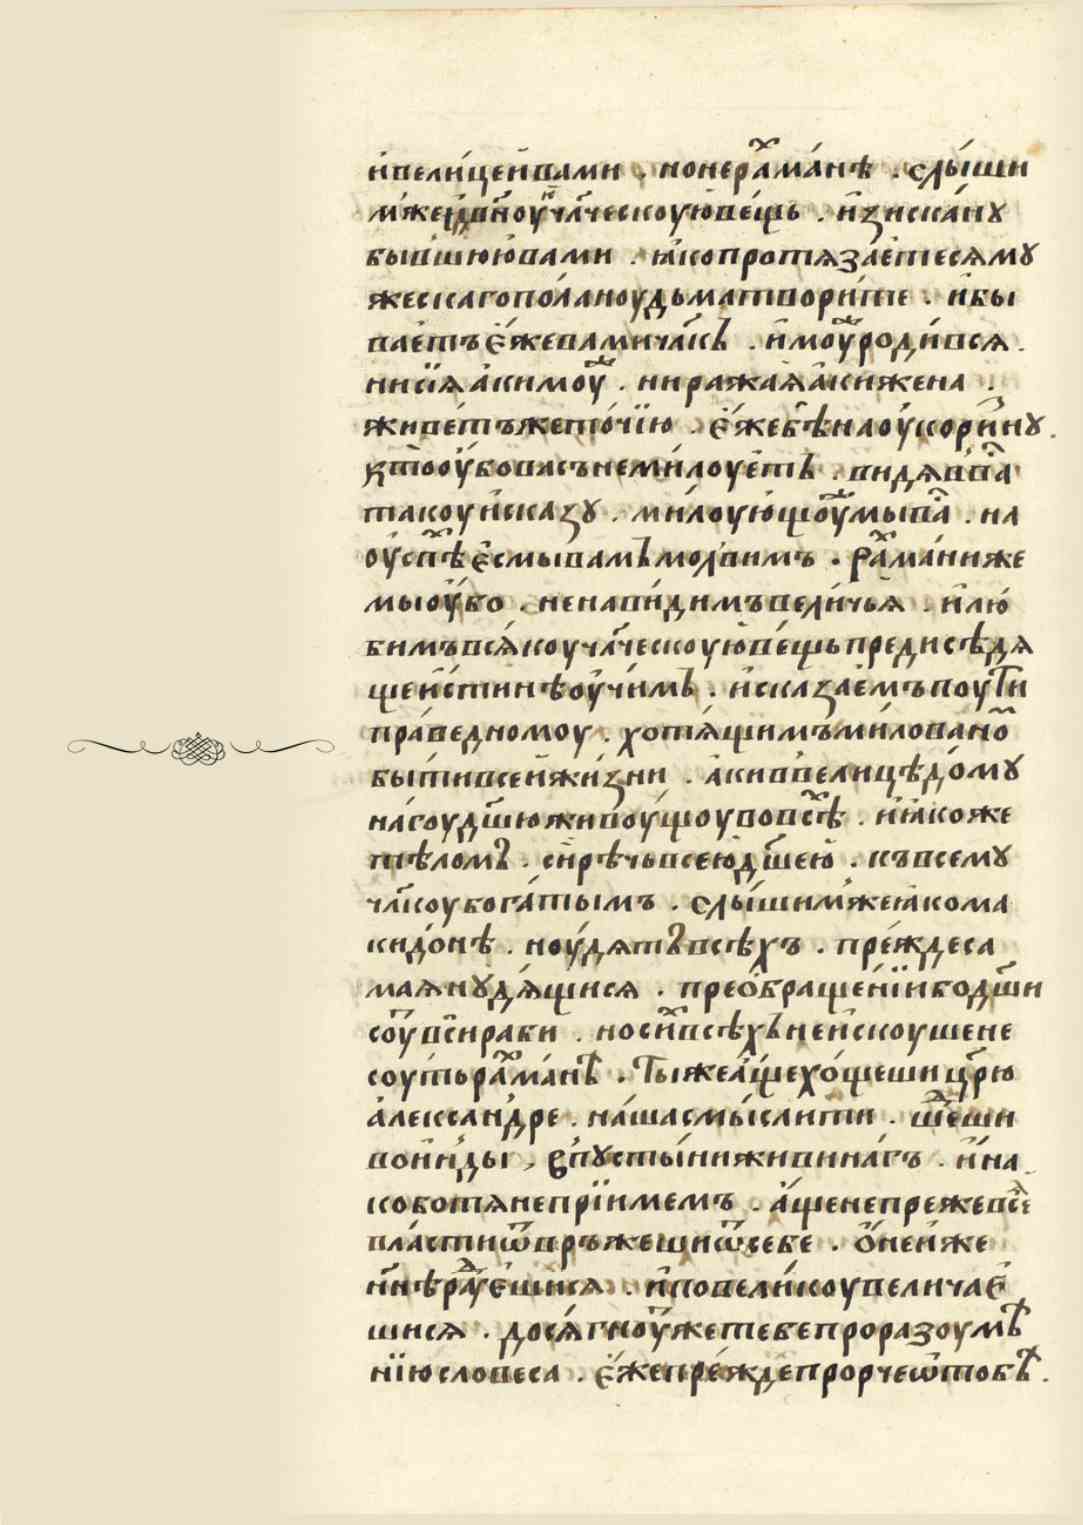 и҆вели́цеи҆вами . нонерⷯа́ма́нѣ . слы́ши
мⷤ́еи҆дви̑ноу҆ч҃лческоую҆ве́щь . и҆зиска́нꙋ
бы́вшюю҆вами . ꙗ҆копротѧза́етесѧмꙋ
жескагопо́ланоудьматвори́те . и҆бы
ва́етъє҆́жевамич҃лкъ . и҆моуⷤ́роди́всѧ .
нисїѧа҆кимоуⷤ . ниража́ѧа҆кижена .
живе́тъжето́чїю . є҆́жебѣ̀наоу҆кори́нꙋ .
кто̀оу҆́бовасънеми́лоуетъ . видѧвⸯвⷭа
такоуи҆́сказꙋ . ми́лоую҆щоуⷤмыва̑ . на
оу҆спⷯѣє҆смывамъмо́лвимъ . рⷯа́ма́ниже
мыоу҆́бо . ненави́димъвели́чьѧ . и҆лю́
бимъвсѧ́коуч҃лческоую҆ве́щьпредисѣдѧ
щеи҆́стинѣоу҆чи́мъ . и҆сказа́емъпоуⷮи
пра́ведномоу . хотѧ́щимъми́лованоⷨ
бы́тивсеи҆жи́зни . а҆киввели́цѣдо́мꙋ
на́гоуд҃шюживоу́щоувовсⷯѣ . и҆ꙗ҆коже
тѣ́ломъ . си́рѣчьвсею҆д҃шею . къвсемꙋ
ч҃лкоубога́тымъ . слы́шимⷤеꙗ҆кома
кидо́нѣ . ноу́дѧтъвсѣ́хъ . пре́ждеса
маѧнꙋдѧ́щисѧ . прео҆браще́нїибод҃ши
соу́всⷭ҇ираби . носи́ⷯвсѣ́хънеи҆скоушене
соу́тьрⷯа́ма́нъ . Тыжеа҆́щехо́щешиц҃рю
а҆леѯа́ндре . на́шасмы́слити . ше́ⷣши
вои҆и҆ды̀ , впꙋсты́ниживина́гъ . и҆́на
коботѧнепрїи́мемъ . а҆́щенепре́жевсеѧ̀
вла́стиѿвръ́жешиѿсебе . о҆́неи҆же
н҃нѣраⷣуе҆шисѧ . и҆повели́коувелича́е
шисѧ . досѧ́гноуⷮжетебепроразоумѣ́
нїюсловеса . є҆́жепре́ждепро́рчеѡ҆тобѣ̀ .